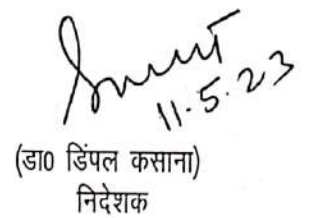 11.5.23
(डा० डिंपल कसाना)
निदेशक